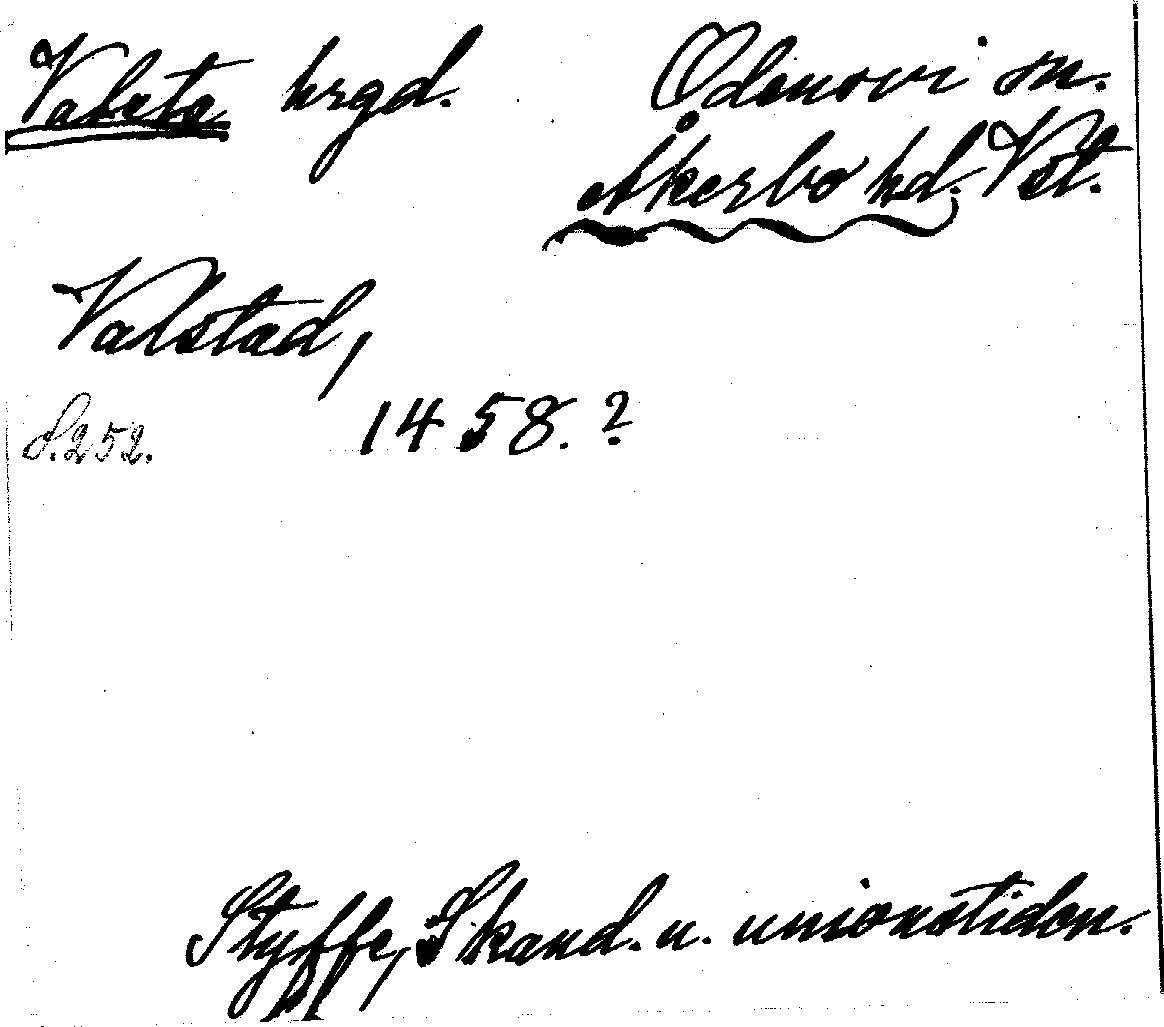 Valsta hrgd. Odensvi sn.
Åkerbo hd. Vst.
Valstad,
S. 252. 1458. ?
Styffe, Skand. u. unionstiden.